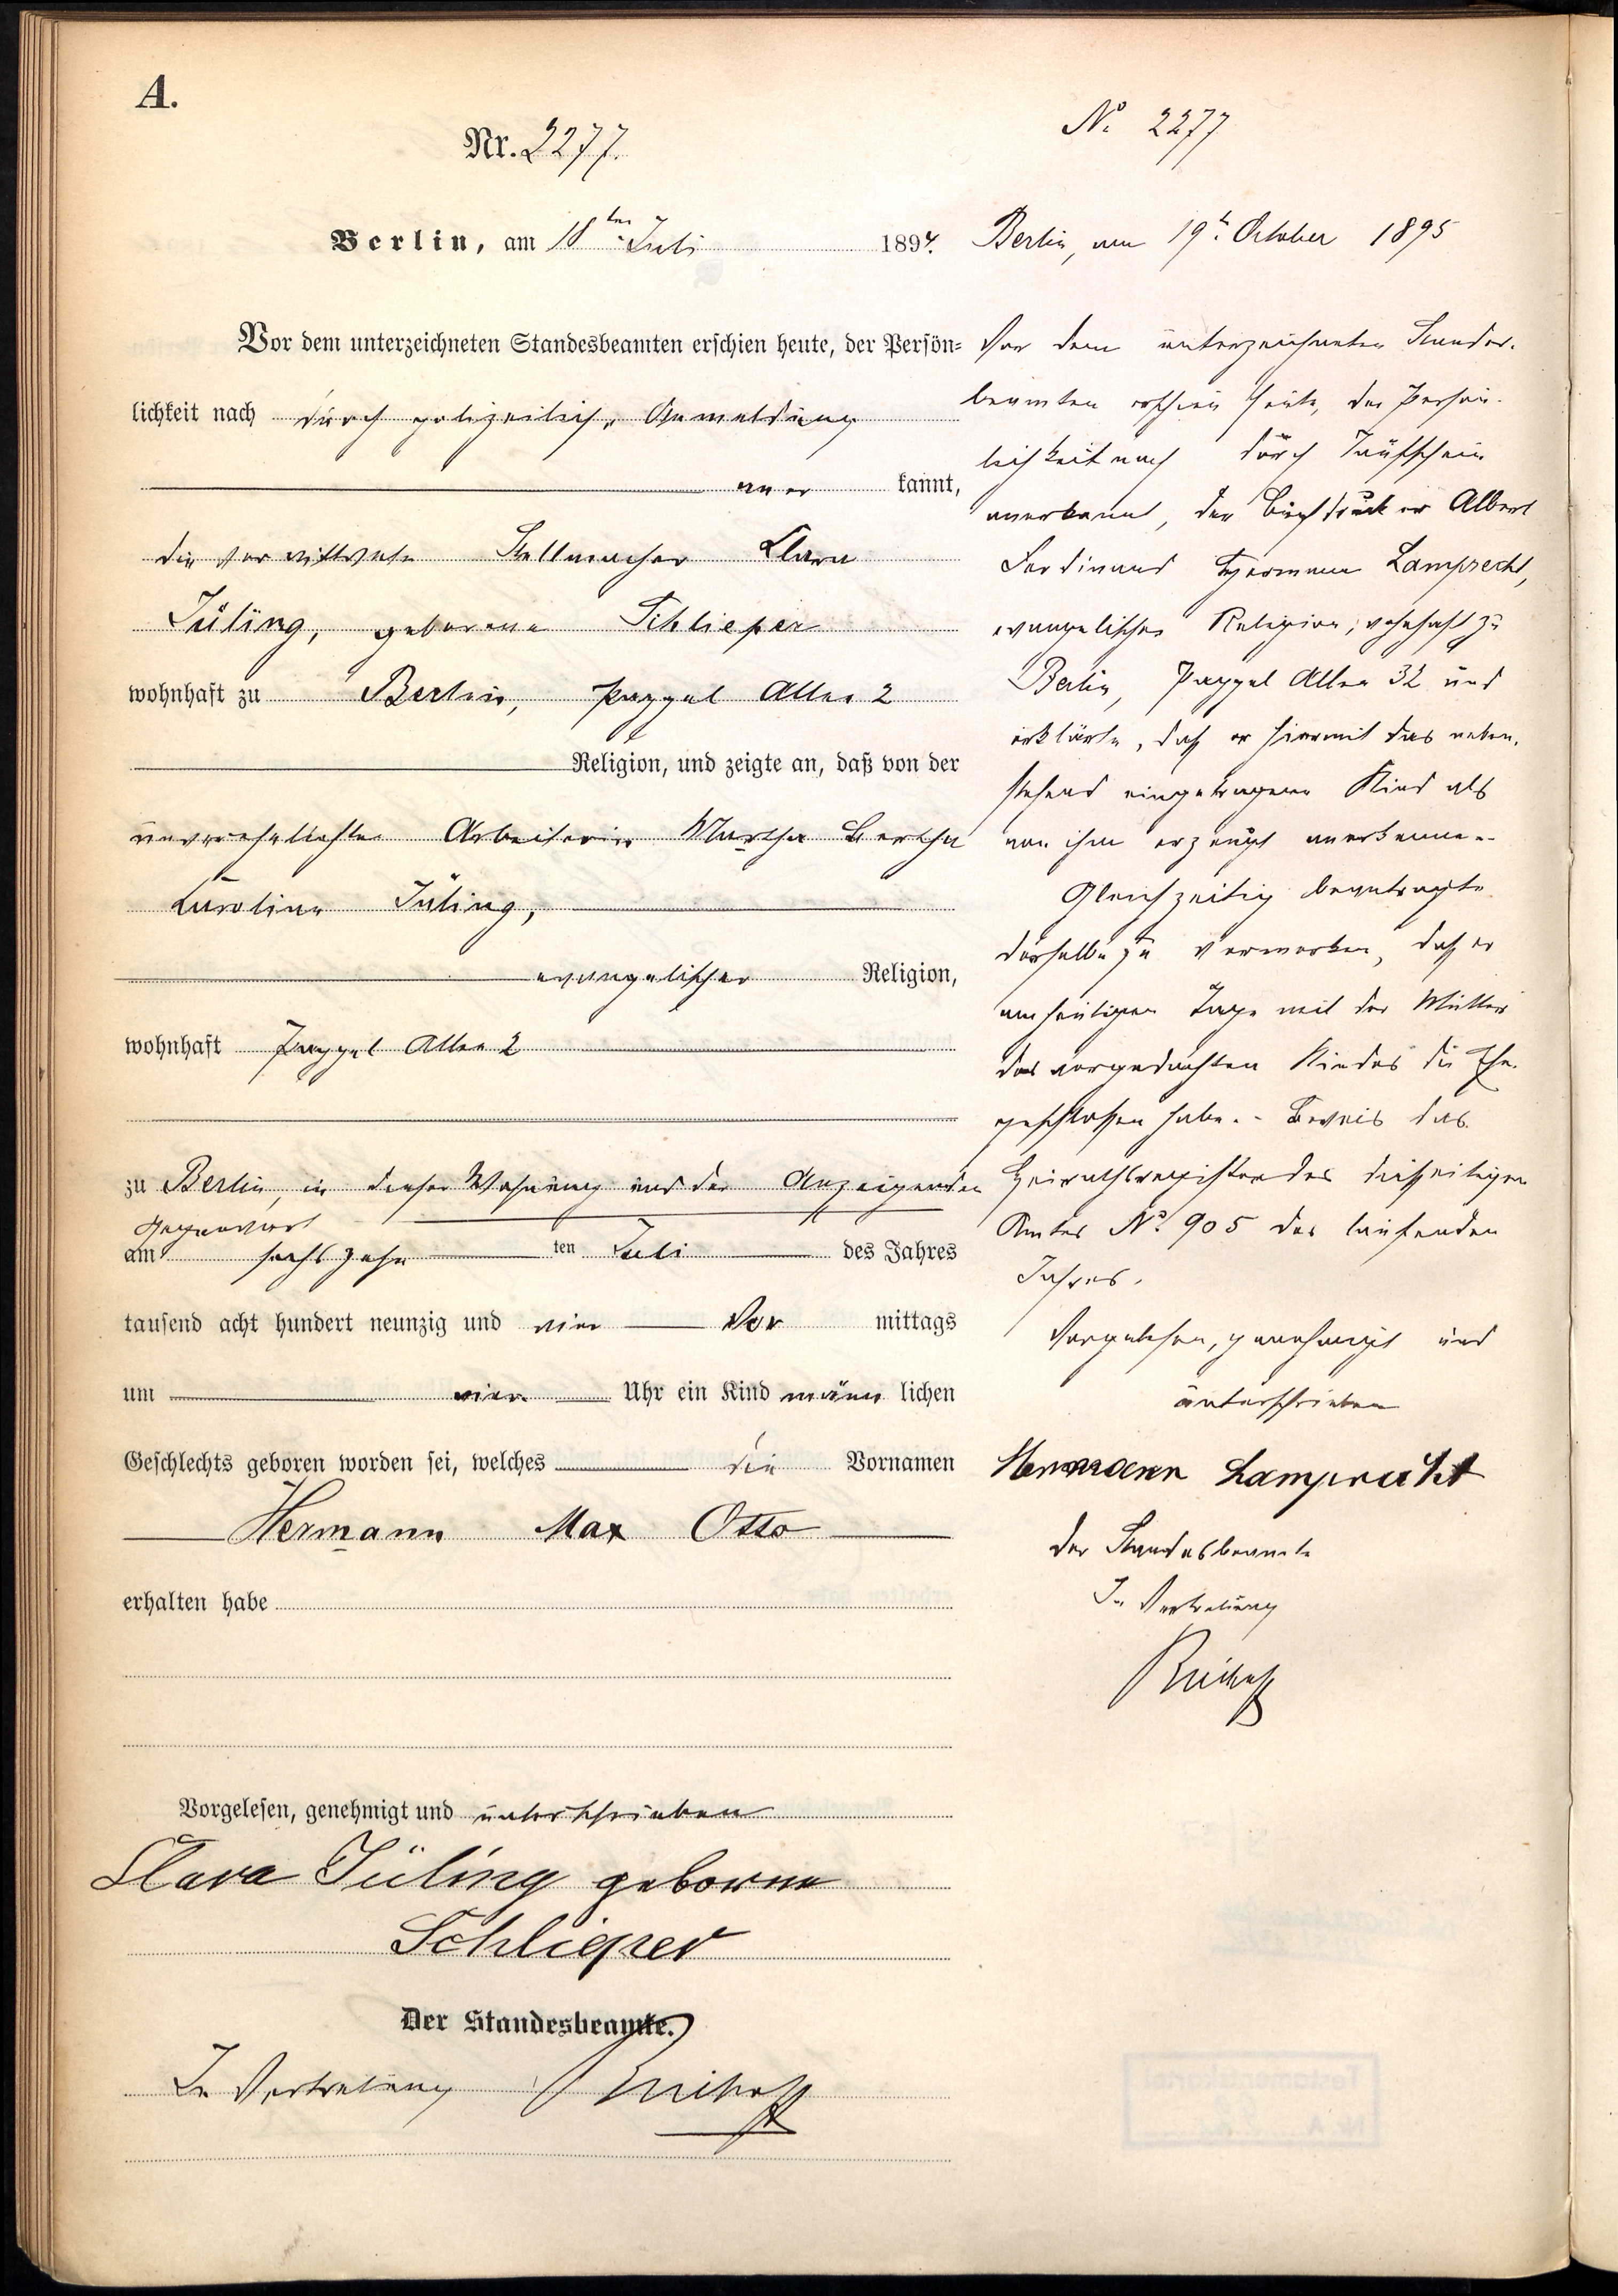 A.
Nr. 2277.
Berlin, am 18ten Juli 1894.
Vor dem unterzeichneten Standesbeamten erschien heute, der Persön-
lichkeit nach durch polizeiliche Anmeldung
aner kannt,
die verwittwete Stellmacher Clara
Jüling, geborene Schlieper
wohnhaft zu Berlin, Pappel Allee 2
Religion, und zeigte an, daß von der
unverehelichten Arbeiterin Martha Bertha
Caroline Jüling,
evangelischer Religion,
wohnhaft Pappel Allee 2
zu Berlin, in dieser Wohnung und der Anzeigenden
Gegenwart
am sechszehn ten Juli des Jahres
tausend acht hundert neunzig und vier Vor mittags
um vier Uhr ein Kind männ lichen
Geschlechts geboren worden sei, welches die Vornamen
Hermann Max Otto
erhalten habe
Vorgelesen, genehmigt und unterschrieben
Clara Jüling geborne
Schlieper
Der Standesbeamte.
In Vertretung
No 2277
Berlin, am 19t. October 1895
Vor dem unterzeichneten Standes-
beamten erschien heute, der Persön-
lichkeit nach durch Taufschein
anerkannt, der Buchdrucker Albert
Ferdinand Hermann Lamprecht,
evangelischer Religion, wohnhaft zu
Berlin, Pappel Allee 32 und
erklärte, daß er hiermit das neben-
stehend eingetragene Kind als
von ihm erzeugt anerkenne.-
Gleichzeitig beantragte
derselbe zu vermerken, daß er
am heutigen Tage mit der Mutter
des vorgedachten Kindes die Ehe
geschlossen habe.- Beweis das
Heirathsregister des diesseitigen
Amtes No. 905 des laufenden
Jahres.
Vorgelesen, genehmigt und
unterschrieben
Hermann Lamprecht
Der Standesbeamte
In Vertretung